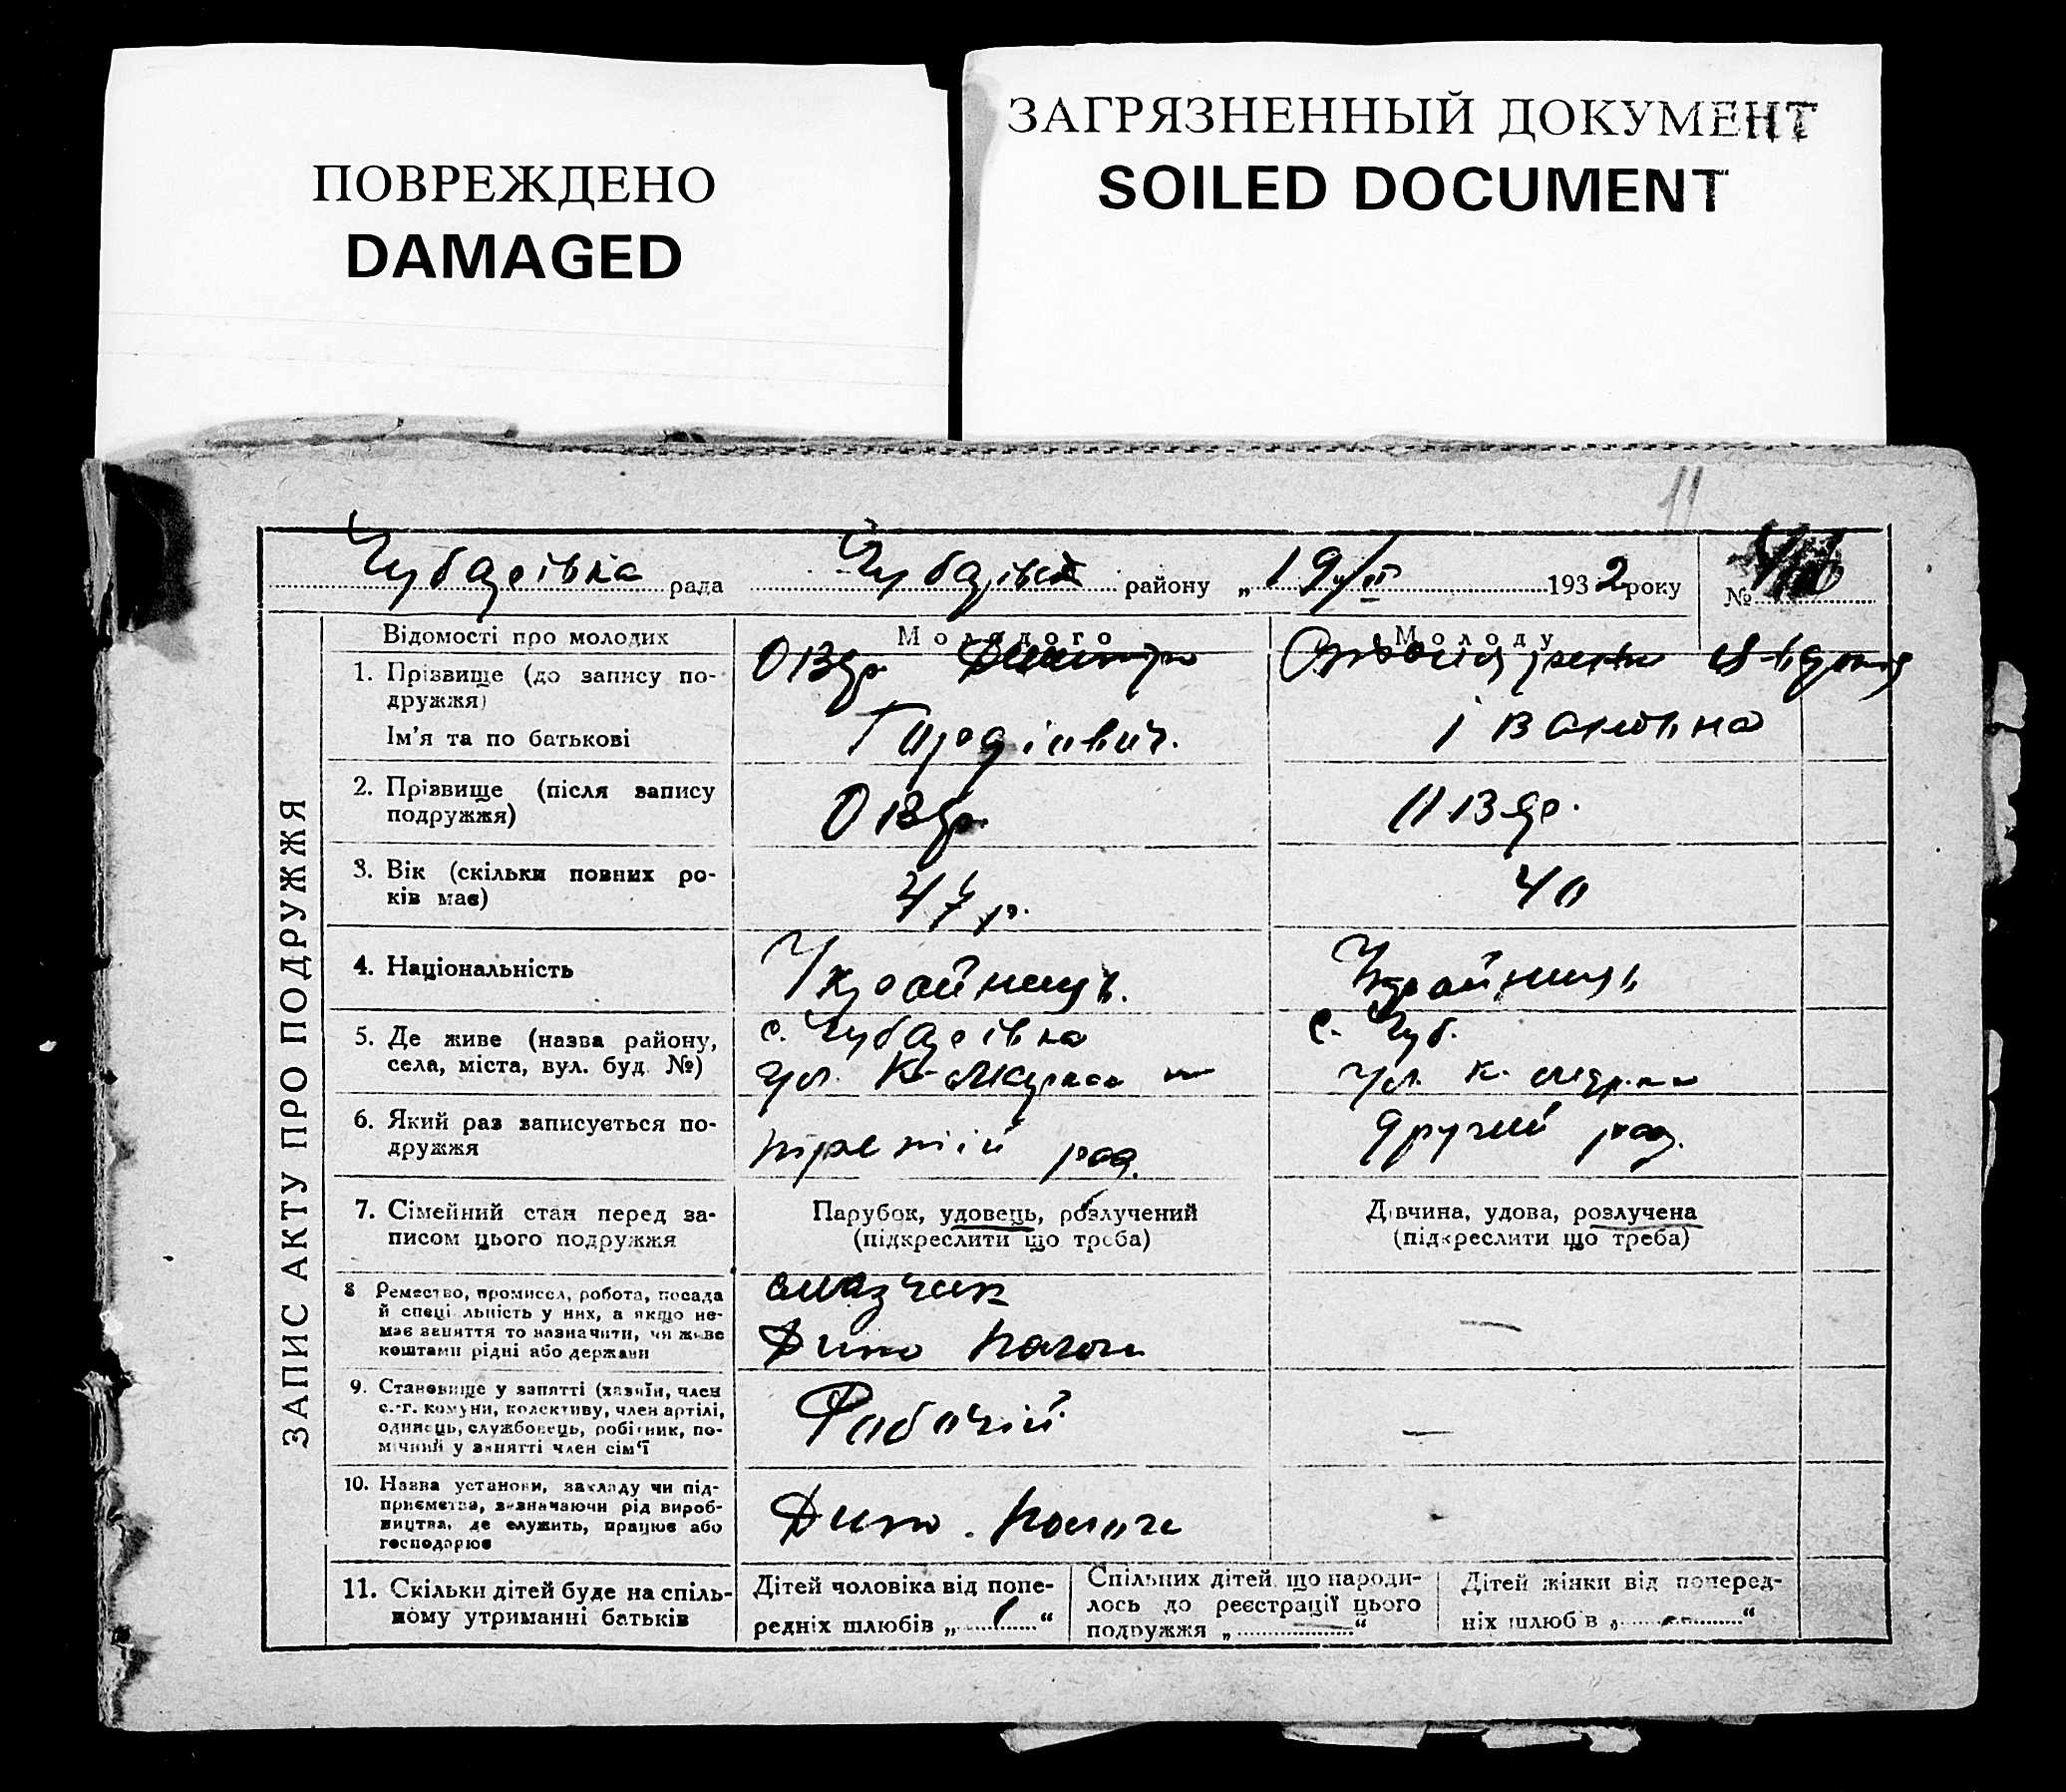 ПОВРЕЖДЕНО
DAMAGED
ЗАГРЯЗНЕННЫЙ ДОКУМЕНТ
SOILED DOCUMENT
11
Чубарівка рада Чубарівськ району „ 19/ІІ 1932 року №
ЗАПИС АКТУ ПРО ПОДРУЖЖЯ
Відомості про молодих
Молодого
Молоду
1. Прізвище (до запису по-
дружжя)
Ім'я та по батькові
Дмитро
Гордієвич.
Івановна
2. Прізвище (після запису
подружжя)
3. Вік (скільки повних ро-
ків має)
47 р.
40
4. Національність
Українець.
Українець
5. Де живе (назва району,
села, міста, вул. буд. №)
с. Чубарівка
ул. К-Маркса
с. Чуб.
ул. К. Маркса
6. Який раз записується по-
дружжя
третій раз.
другий раз.
7. Сімейний стан перед за-
писом цього подружжя
Парубок, удовець, розлучений
(підкреслити що треба)
Дівчина, удова, розлучена
(підкреслити що треба)
8 Ремество, промисел, робота, посада
й спеціальність у них, а якщо не-
має заняття то назначити, чи живе
коштами рідні або держави
смазчик
—
9. Становище у занятті (хазяїн, член
с.-г. комуни, колективу, член артілі,
одинець, службовець, робітник, по-
мічний у занятті член сім'ї
Рабочій
—
10. Назва установи, закладу чи під-
приємства, зазначаючи рід вироб-
ництва, де служить, працює або
господарює
11. Скільки дітей буде на спіль-
ному утриманні батьків
Дітей чоловіка від попе-
редніх шлюбів „ 1 “
Спільних дітей, що народи-
лось до реєстрації цього
подружжя „ — “
Дітей жінки від поперед-
ніх шлюбів „ — “